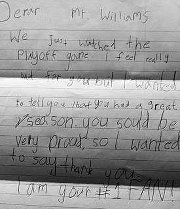 Dear Mr Williams
We just watched the
Playoff game I feel really
bad for you but I wanted
to tell you that you had a great
season you sould be
very proud so I wanted
to say thank you
I am your #1 FAN!